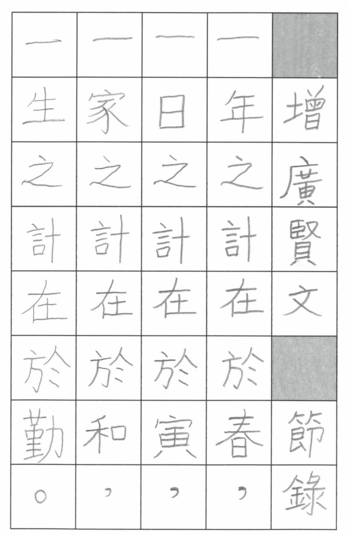 增廣賢文 節錄
一年之計在於春，
一日之計在於寅，
一家之計在於和，
一生之計在於勤。